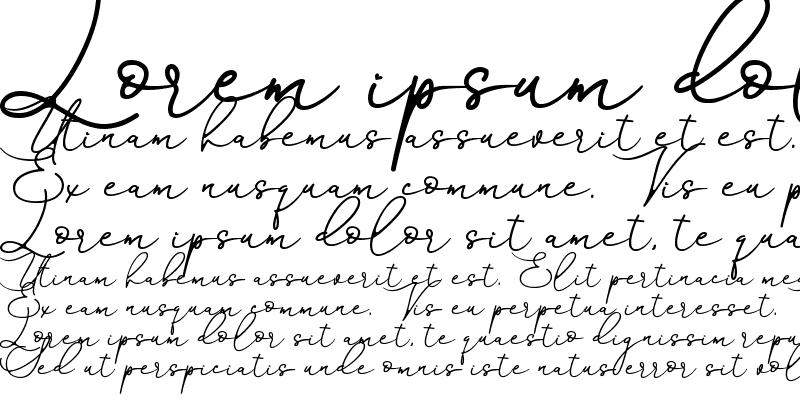 Lorem ipsum dol
Utinam habemus assueverit et est.
Ex eam nusquam commune. Vis eu p
Lorem ipsum dolor sit amet, te qua
Utinam habemus assueverit et est. Elit pertinacia me
Ex eam nusquam commune. Vis eu perpetua interesset.
Lorem ipsum dolor sit amet, te quaestio dignissim repu
Sed ut perspiciatis unde omnis iste natus error sit vol